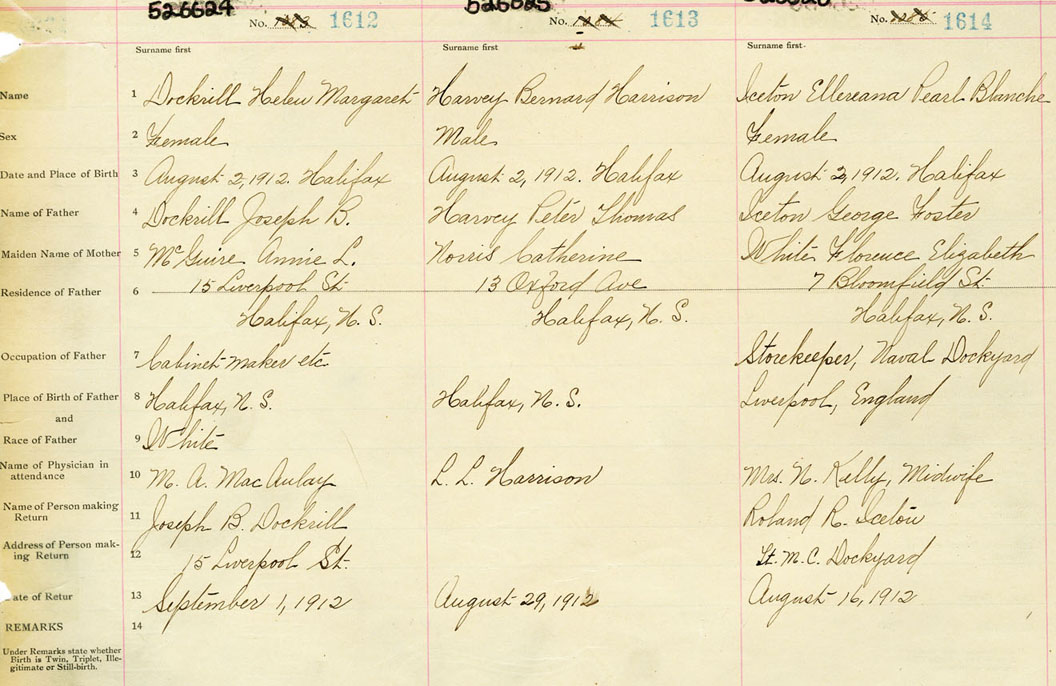 526624 526625
No. 1612 No. 1613 No. 1614
Surname first Surname first Surname first
Name 1 Dockrill Helen Margaret Harvey Bernard Harrison Iceton Ellereana Pearl Blanche
Sex 2 Female Male Female
Date and Place of Birth 3 August 2, 1912. Halifax August 2, 1912. Halifax August 2, 1912. Halifax
Name of Father 4 Dockrill Joseph B. Harvey Peter Thomas Iceton George Foster
Maiden Name of Mother 5 McGuire Annie L. Norris Catherine White Florence Elizabeth
Residence of Father 6 15 Liverpool St. 13 Oxford Ave 7 Bloomfield St.
Halifax, N.S. Halifax, N.S. Halifax, N.S.
Occupation of Father 7 Cabinet-maker etc Storekeeper, Naval Dockyard
Place of Birth of Father 8 Halifax, N.S. Halifax, N.S. Liverpool, England
and
Race of Father 9 White
Name of Physician in
attendance 10 M. A. MacAulay L. L. Harrison Mrs. N. Kelly, Midwife
Name of Person making
Return 11 Joseph B. Dockrill Roland R. Iceton
Address of Person mak-
ing Return 12 15 Liverpool St. M.C. Dockyard
ate of Retur 13 September 1, 1912 August 29, 1912 August 16, 1912
REMARKS 14
Under Remarks state whether
Birth is Twin, Triplet, Ille-
gitimate or Still-birth.